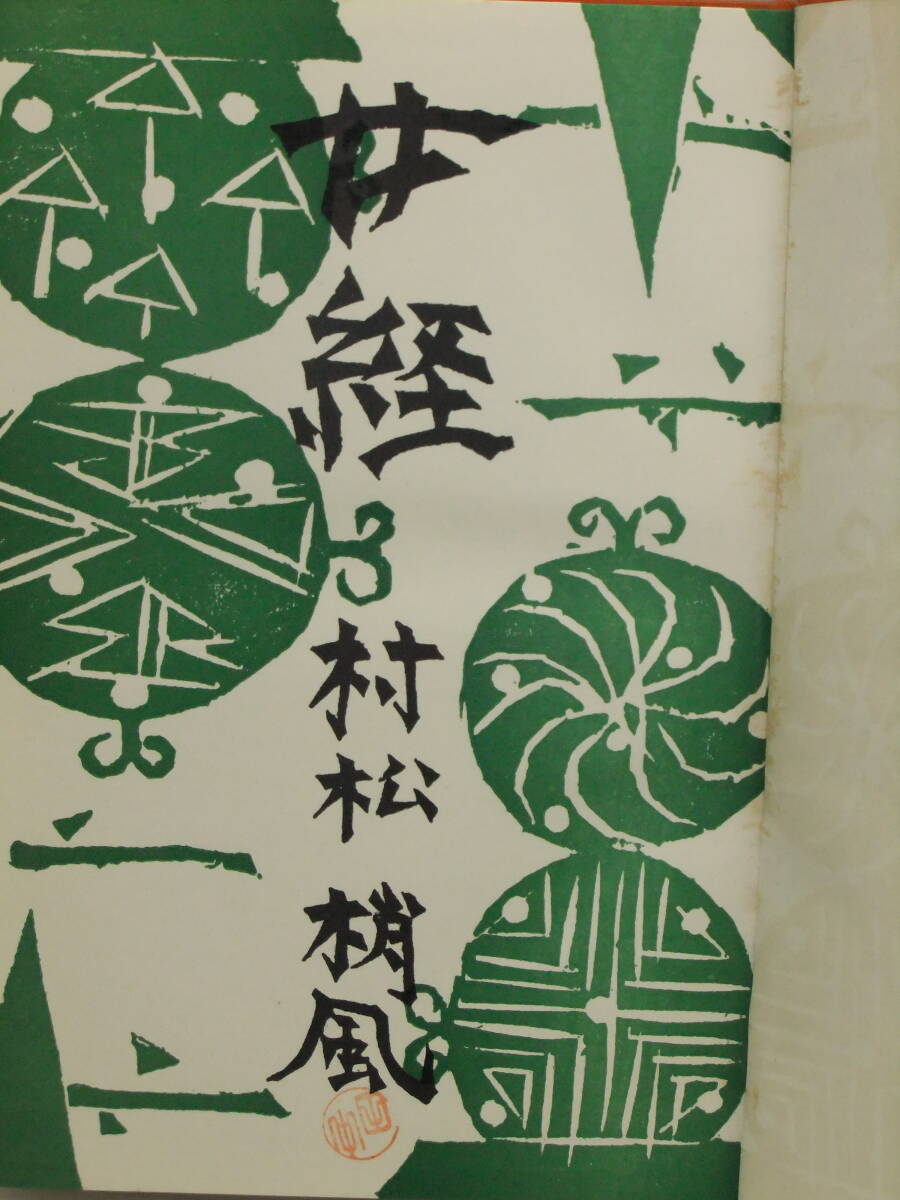 女経
村松梢風